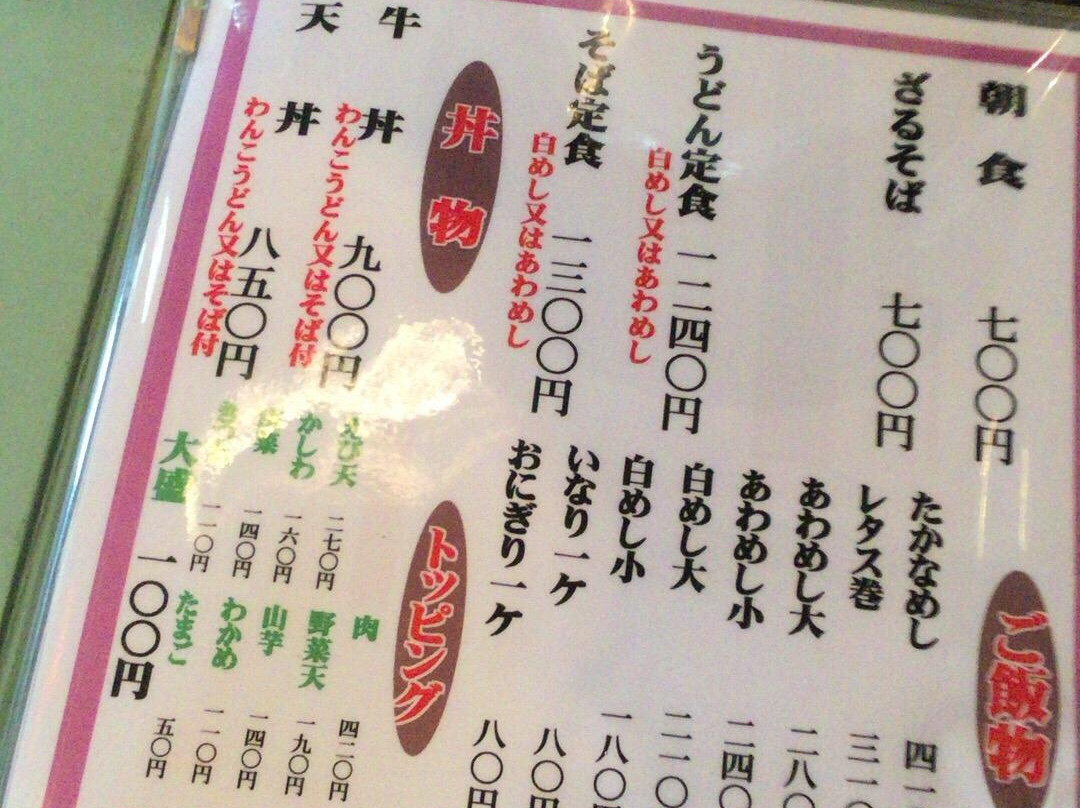 朝食 七〇〇円
ざるそば 七〇〇円
うどん定食 一二四〇円
白めし又はあわめし
そば定食 一三〇〇円
白めし又はあわめし
ご飯物
たかなめし 四一
レタス巻 三一〇
あわめし大 二八〇
あわめし小 二四〇
白めし大 二一〇
白めし小 一八〇
いなり一ケ 八〇円
おにぎり一ケ 八〇円
丼物
牛丼 九〇〇円
わんこうどん又はそば付
天丼 八五〇円
わんこうどん又はそば付
トッピング
肉 四二〇円
えび天 二七〇円
野菜天 一九〇円
かしわ 一六〇円
山芋 一四〇円
菜 一四〇円
わかめ 一一〇円
一一〇円
たまご 五〇円
大盛 一〇〇円